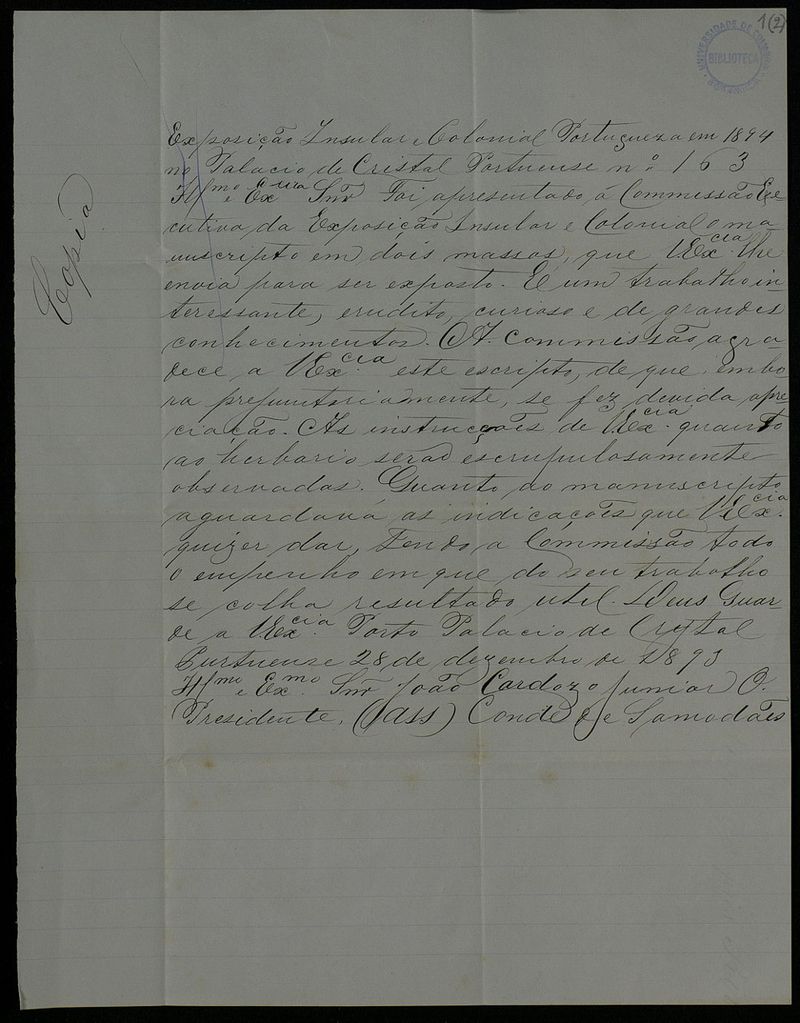 1(2)
UNIVERSIDADE DE COIMBRA
BIBLIOTECA
Copia
Exposição Insular e Colonial Portugueza em 1894
no Palacio de Cristal Portuense nº 163
Illmo e Exmo Snr Foi apresentado á Commissão Exe
cutiva da Exposição Insular e Colonial o ma
nuscripto em dois massos, que VExcia lhe
envia para ser exposto. É um trabalho in
teressante, erudito, curioso e de grandes
conhecimentos. A Commissão agra
dece a VExcia este escripto, de que, embo
ra preumtoriamente, se fez devida apre
ciação. As instrucções de VExcia quanto
ao herbario serão escrupulosamente
observadas. Quanto ao manuscripto
aguardará as indicações que VExcia
quizer dar, tendo a Commissão todo
o empenho em que do seu trabalho
se colha resultado util. Deus Guar
de a VExcia Porto Palacio de Crystal
Purtuense 28 de dezembro de 1893
Illmo e Exmo Snr João Cardozo Junior O.
Presidente, (ass) Conde de Samodães